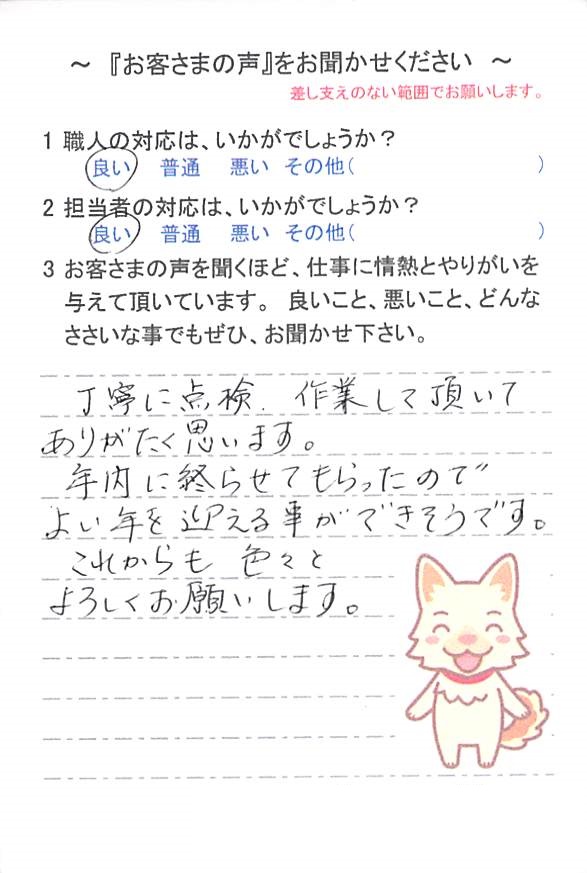 ～ 『お客さまの声』をお聞かせください ～
差し支えのない範囲でお願いします。
1 職人の対応は、いかがでしょうか？
良い 普通 悪い その他( )
2 担当者の対応は、いかがでしょうか？
良い 普通 悪い その他( )
3 お客さまの声を聞くほど、仕事に情熱とやりがいを
与えて頂いています。 良いこと、悪いこと、どんな
ささいな事でもぜひ、お聞かせ下さい。
丁寧に点検、作業して頂いて
ありがたく思います。
年内に終らせてもらったので
よい年を迎える事ができそうです。
これからも 色々と
よろしくお願いします。